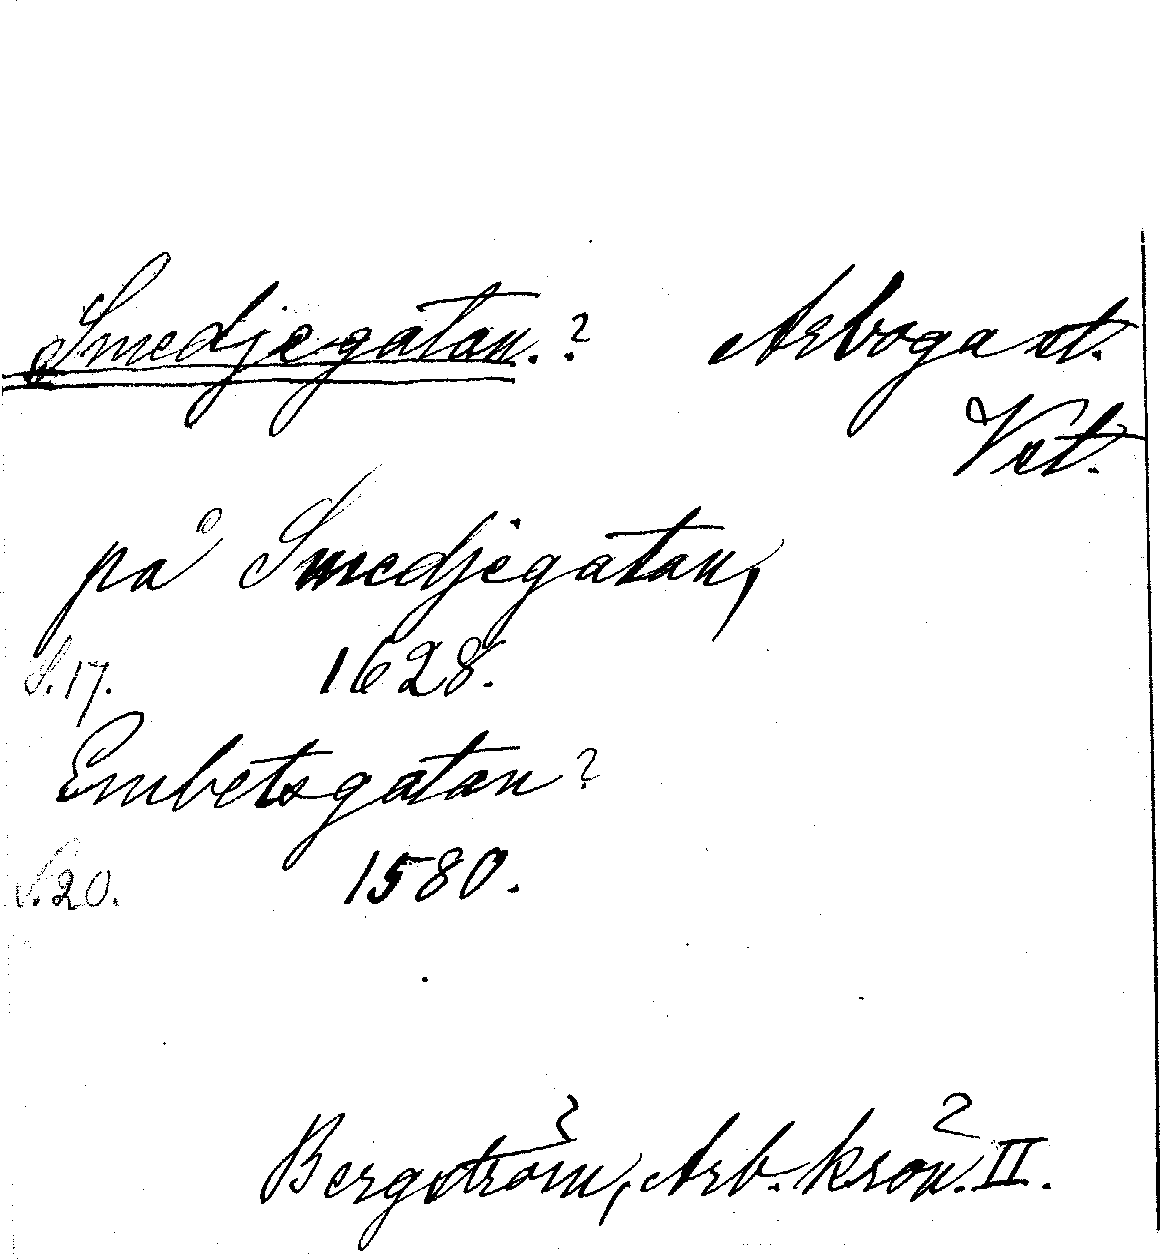 Smedjegatan.? Arboga st.
Vst.
på Smedjegatan,
S.17. 1628.
Embetsgatan?
S.20. 1580.
Bergström, Arb. krön. II.